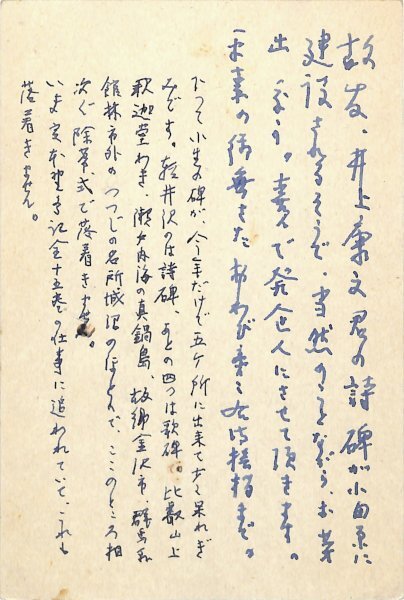 故友、井上康文君の詩碑が小田原に
建設されるそうで、当然のことながら、お芽
出度う。喜んで発企人にさせて頂きます。
平素の御無さたお わび 乗々 右御挨拶まで。
だって小生の碑が、今年だけで五ケ所に出来て少々呆れぎ
みです。軽井沢のは詩碑、あとの四つは歌碑。比叡山上
釈迦堂わき、瀬戸内海の真鍋島、故郷金沢市、群馬縣
館林市外のつつじの名所城沼のほとりで、ここのところ相
次ぐ除幕式で落着きません。
いま定本 全十五巻の仕事に追われていて、これも
落着きません。